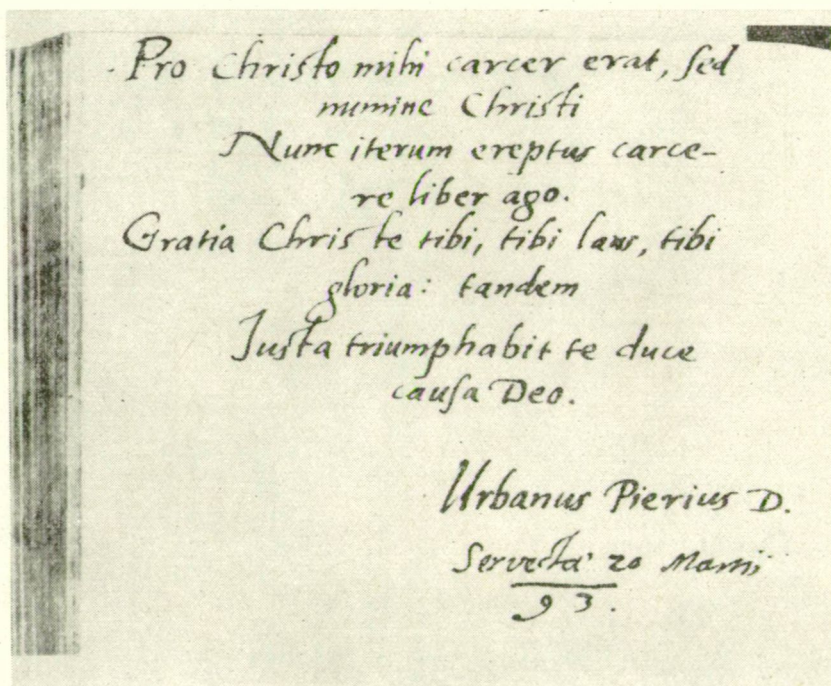 Pro Christo mihi carcer erat, sed
numine Christi
Nunc iterum ereptus carce-
re liber ago.
Gratia Christe tibi, tibi laus, tibi
gloria: tandem
Iusta triumphabit te duce
causa Deo.
Urbanus Pierius D.
Servestae 20 Martij
93.